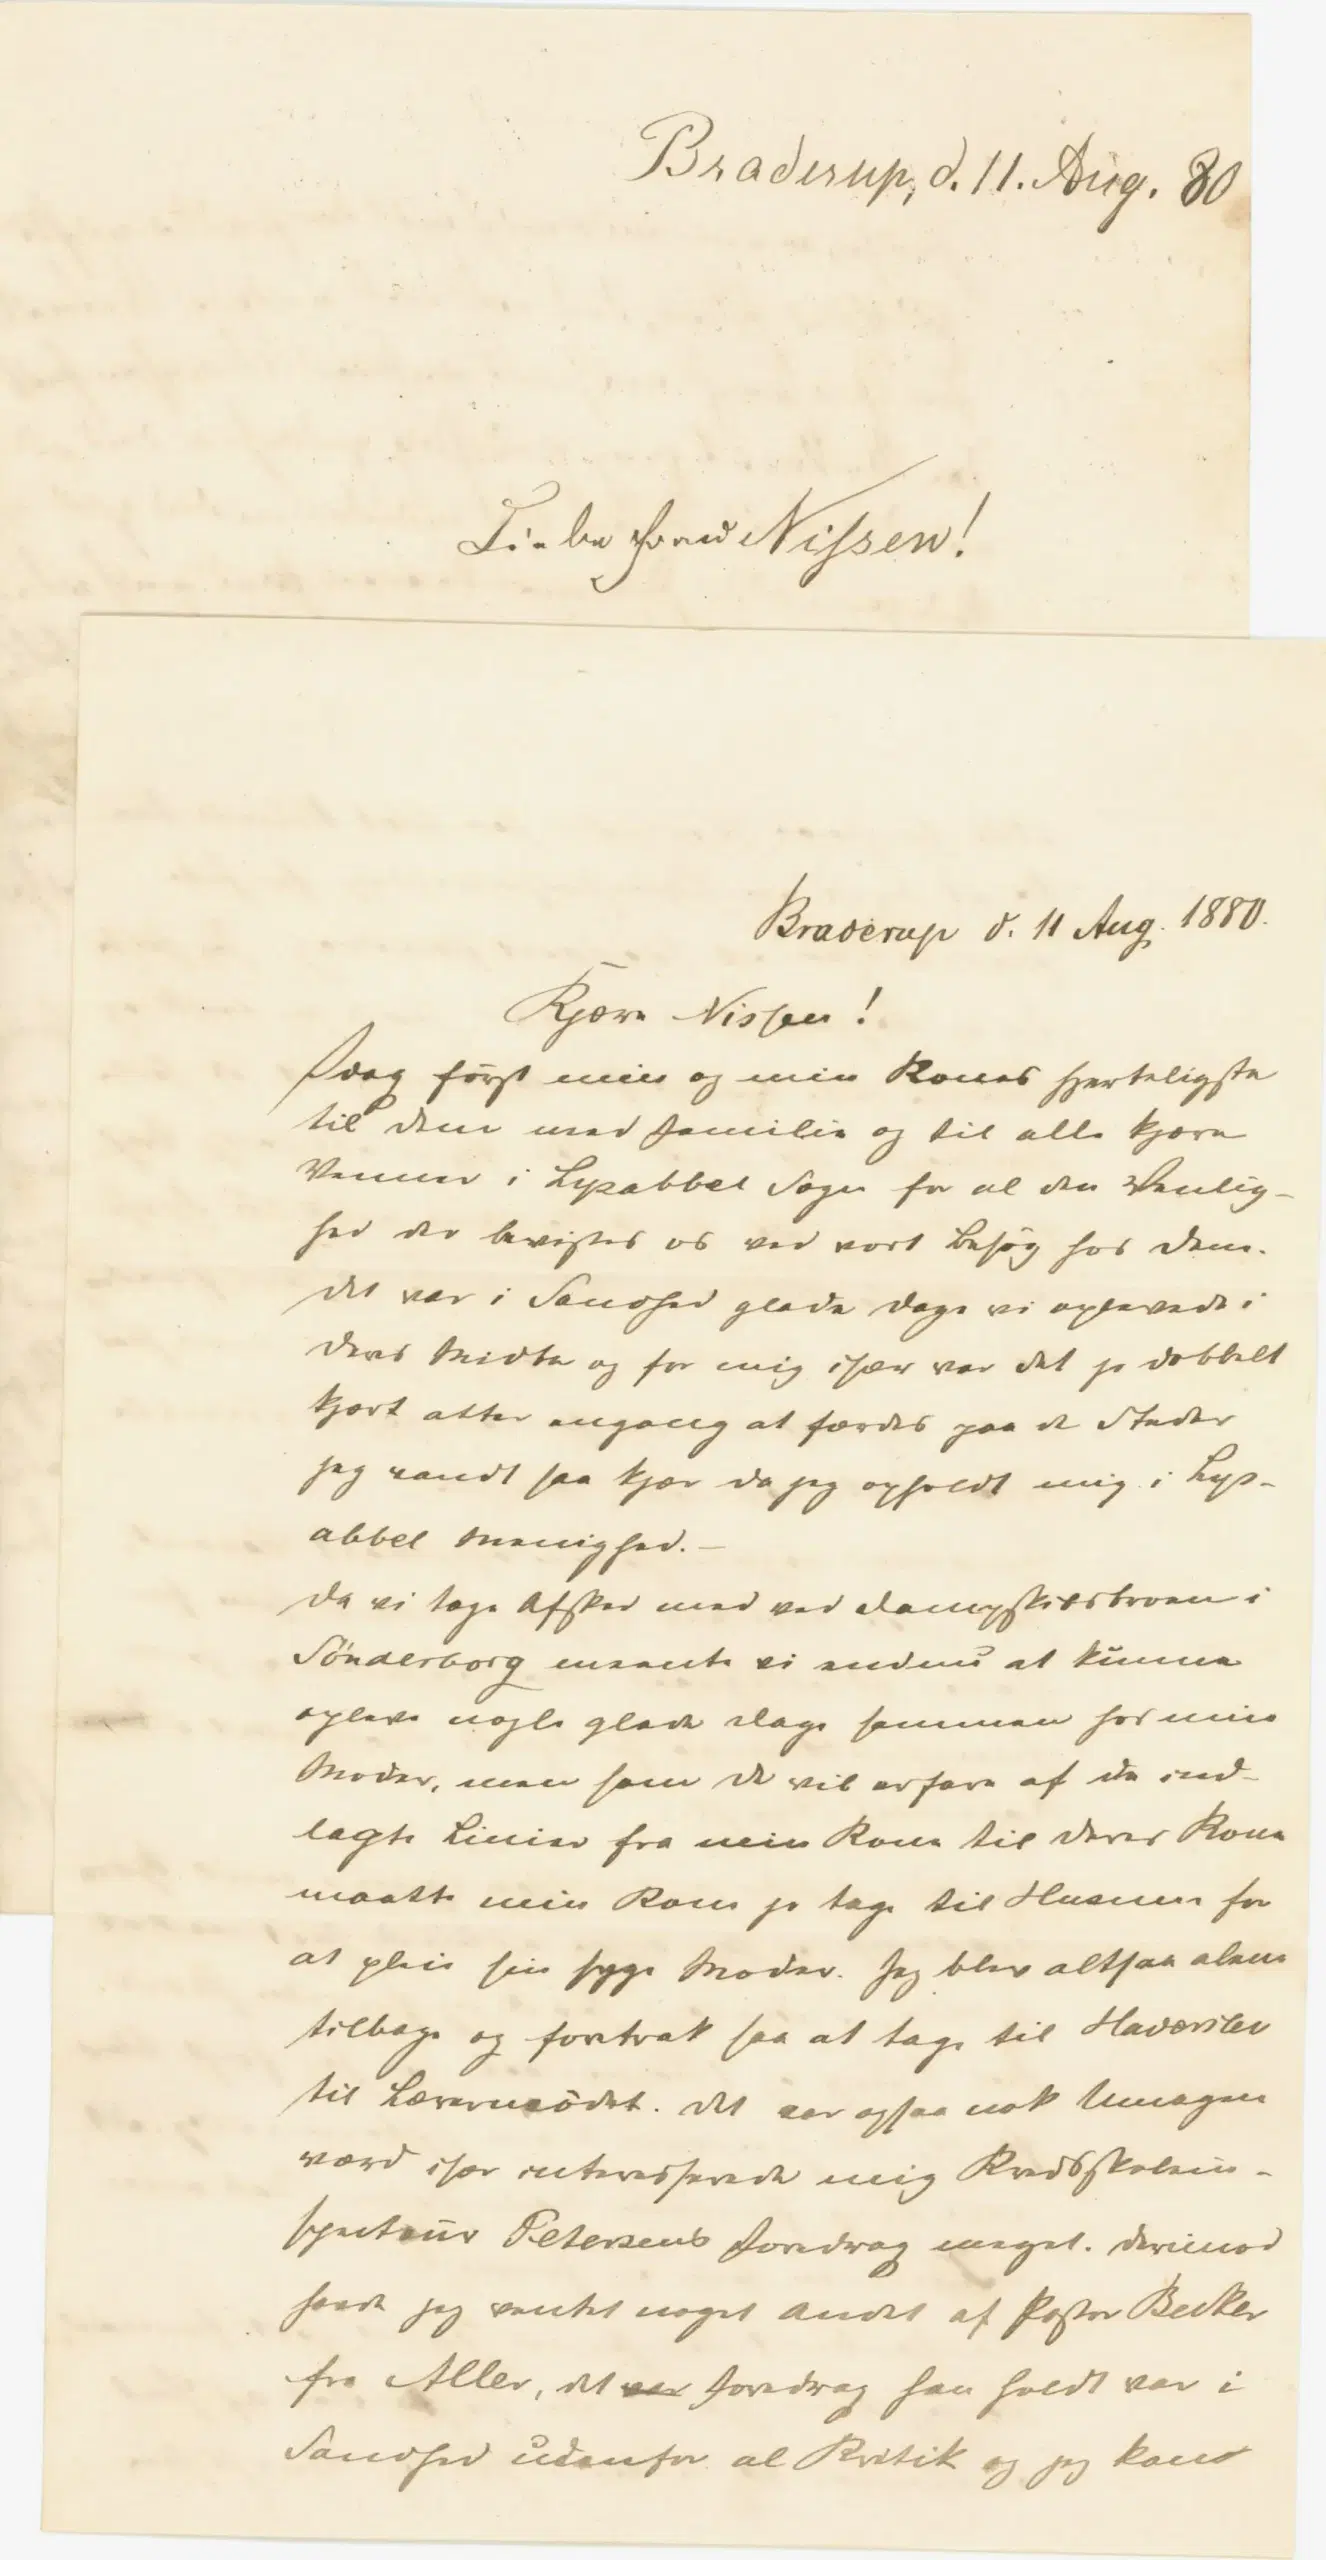 Braderup, d. 11. Aug. 80
Liebe Frau Nissen!
Braderup d. 11 Aug. 1880.
Kjære Nissen!
Idag først min og min Kones hjerteligste
til dem med Familie og til alle kjære
Venner i Lysabbel Sogn for al den Venlig-
hed der bevistes os ved vort Besøg hos dem.
det var i Sandhed glade dage vi oplevede i
deres Midte og for mig især var det jo dobbelt
kjært atter engang at færdes paa de Steder
jeg vandt saa kjær da jeg opholdt mig i Lys-
abbel Menighed. —
da vi toge Afsked med ved dampskibsbroen i
Sönderborg meente vi endnu at kunne
opleve nogle glade dage sammen hos min
Moder, men som de vil erfare af de ind-
lagte Linier fra min Kone til deres Kone
maatte min Kone jo tage til Husum for
at pleie sin syge Moder. Jeg blev altsaa alene
tilbage og foretrak saa at tage til Haderslev
til Lærermödet. det var ogsaa nok Umagen
værd især interesserede mig Kredsskolein-
specteur Petersens Foredrag meget. derimod
havde jeg ventet noget Andet af Pastor Becker
fra Aller, det var Foredrag han holdt var i
Sandhed udenfor al Kritik og jeg kand